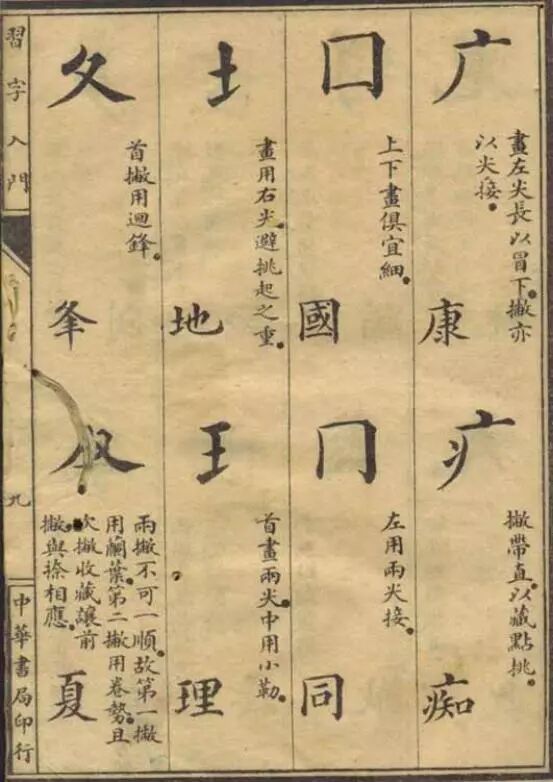 广
畫左尖長以冒下。撇亦
以尖接。
康
囗
上下畫俱宜細。
國
土
畫用右尖。避挑起之重。
地
夂
首撇用迴鋒。
夆
疒
撇帶直。以藏點挑。
痴
冂
左用兩尖接。
同
王
首畫兩尖。中用小勒。
理
夊
兩撇不可一順。故第一撇
用蘭葉。第二撇用卷勢。且
次撇收藏讓前
撇。與捺相應。
夏
習字入門
九
中華書局印行